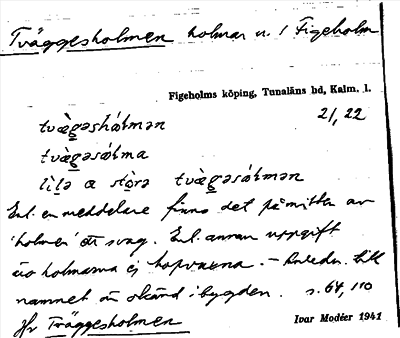 Tväggesholmen holmar n. i Figeholm
Figeholms köping, Tunaläns hd, Kalm. l.
tvæ̀gəshålmən 21, 22
tvæ̀gəsålma
lìlə a stòrə tvæ̀gəsålmən
Enl. en meddelare finns det på mitten av
'holmen' en svag. Enl. annan uppgift
äro holmarna ej hopvuxna. – Anledn. till
namnet är okänd i bygden. s. 64, 110
Jfr Träggesholmen
Ivar Modéer 1941